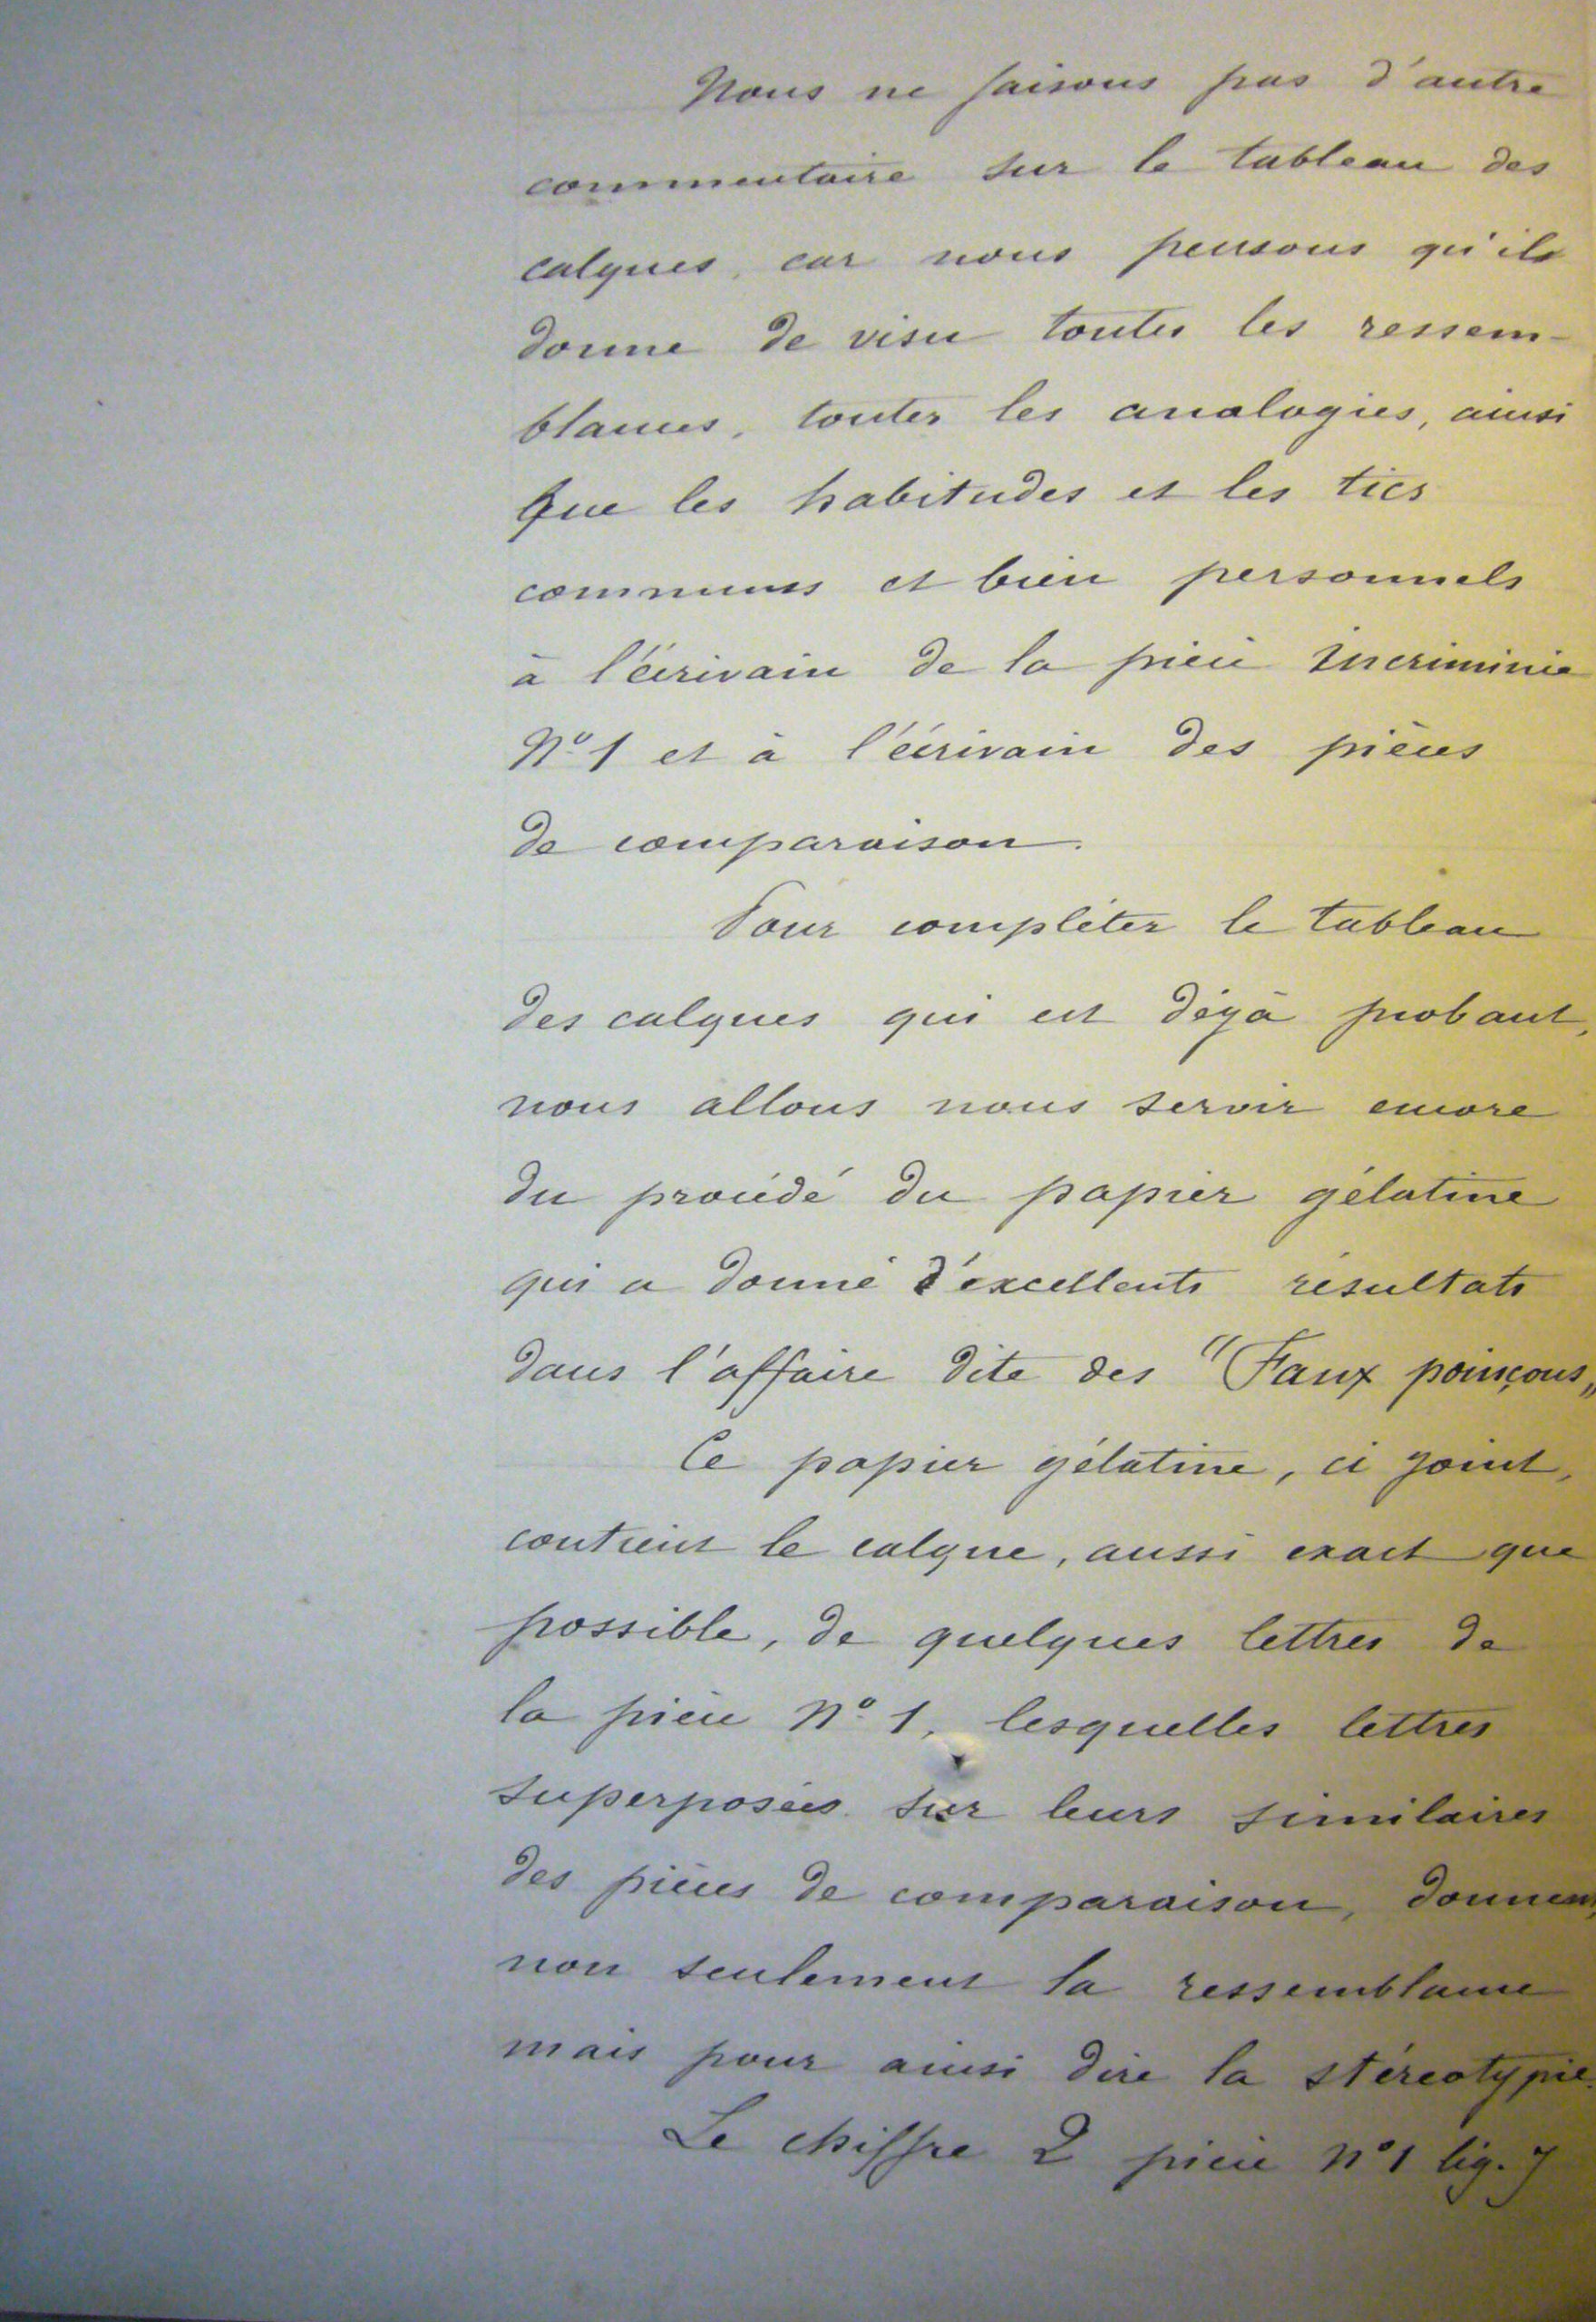 Nous ne faisons pas d'autre
commentaire sur le tableau des
calques, car nous pensons qu'il
donne de visu toutes les ressem-
blances, toutes les analogies, ainsi
que les habitudes et les tics
communs et bien personnels
à l'écrivain de la pièce incriminée
N° 1 et à l'écrivain des pièces
de comparaison.
Pour compléter le tableau
des calques qui est déjà probant,
nous allons nous servir encore
du procédé du papier gélatine
qui a donné d'excellents résultats
dans l'affaire dite des "Faux poinçons„
Ce papier gélatine, ci joint,
contient le calque, aussi exact que
possible, de quelques lettres de
la pièce N° 1, lesquelles lettres
superposées sur leurs similaires
des pièces de comparaison, donnent,
non seulement la ressemblance
mais pour ainsi dire la stéreotypie.
Le chiffre 2 pièce n° 1 lig. 7